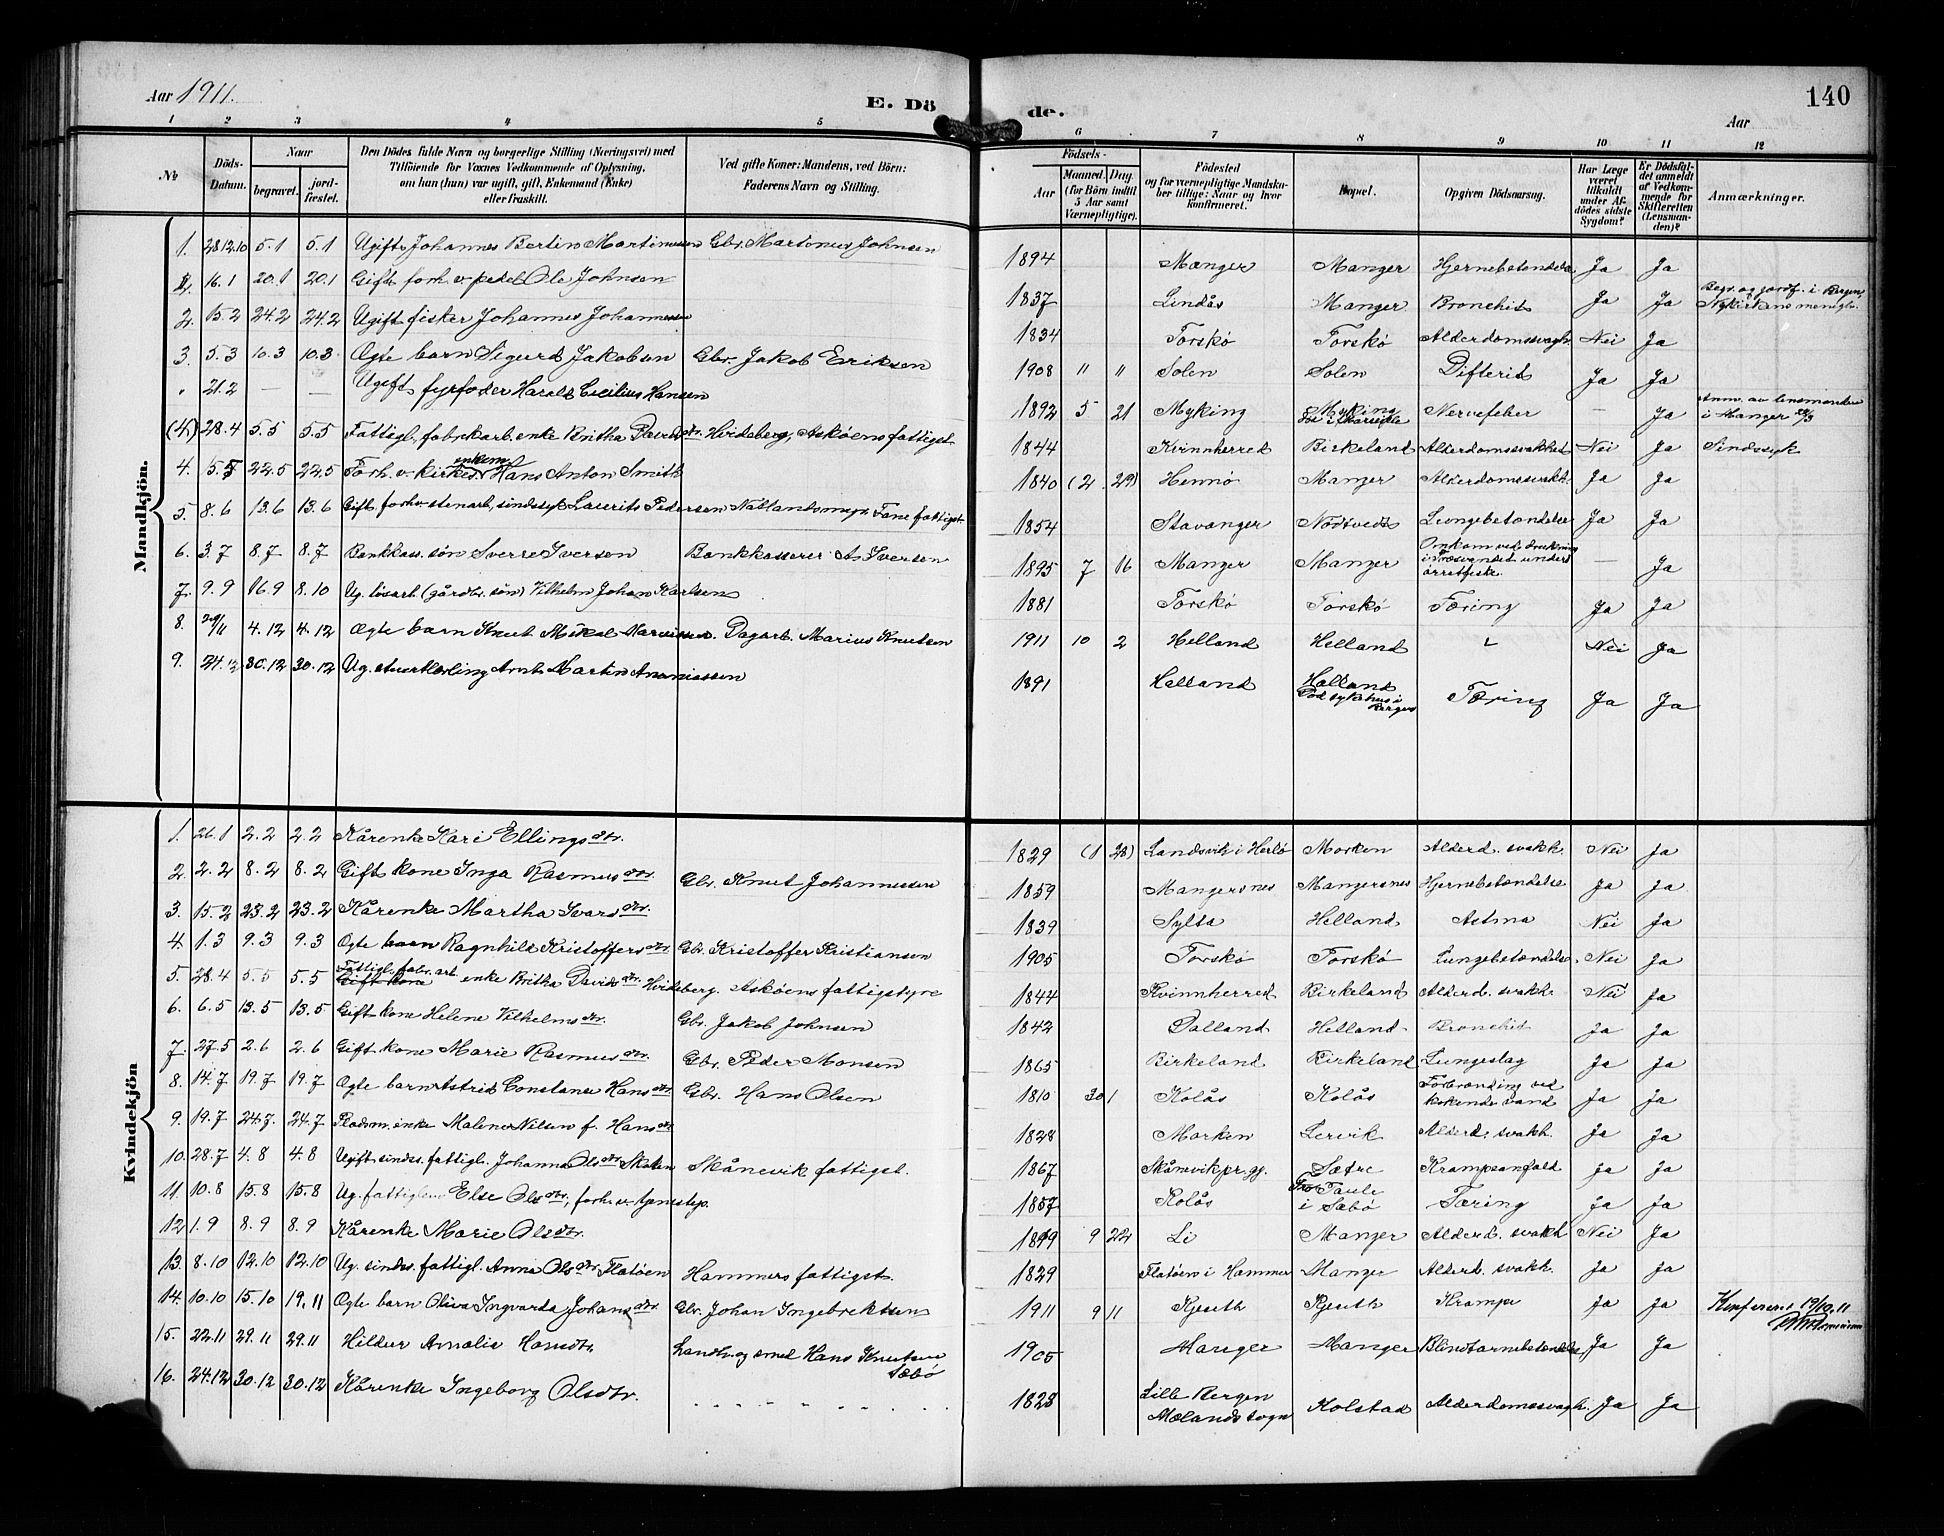 140
Aar 1911.
E. Dö de.
Aar
1 2 3 4 5 6 7 8 9 10 11 12
No.
Döds-Datum.
Naar
begravet.
jord-fæstet.
Den Dödes fulde Navn og borgerlige Stilling (Næringsvei) med
Tilföiende for Voxnes Vedkommende af Oplysning,
om han (hun) var ugift, gift, Enkemand (Enke)
eller fraskilt.
Ved gifte Koner: Mandens, ved Börn:
Faderens Navn og Stilling.
Födsels-
Aar
Maaned. Dag.
(for Börn indtil
5 Aar samt
Værnepligtige).
Födested
og for værnepligtige Mandska-
ber tillige: Naar og hvor
konfirmeret.
Bopæl.
Opgiven Dödsaarsag.
Har Læge
været
tilkaldt
under Af-
dödes sidste
Sygdom?
Er Dödsfal-
det anmeldt
af Vedkom-
mende for
Skifteretten
(Lensman-
den)?
Anmærkninger.
Mandkjön.
1. 28.12.10 5.1 5.1 Ugift Johannes Bertin Martinussen Gbr. Martinus Johnsen 1894 Manger Manger Hjernebetændelse Ja Ja
16.1 20.1 20.1 Gift forh. v. pedel Ole Johnsen 1837 Lindås Manger Bronchit Ja Ja Begr. og jordf. i Bergen, Nykirkens menigh.
2. 15.2 24.2 24.2 Ugift fisker Johannes Johannessen 1834 Torskø Torskø Alderdomssvagh. Nei Ja
3. 5.3 10.3 10.3 Ægte barn Sigurd Jakobsen Gbr. Jakob Eriksen 1908 " " Solen Solen Difterit Ja Ja
" 21.2 — — Ugift fyrbøder Harald Cecilius Hansen 1892 5 21 Myking Myking Nervefeber — Ja Anm. av lensmanden i Manger
(4.) 28.4 5.5 5.5 Fattigl. fabrikarb. enke Britha Davidsdtr. Hvideberg, Askøens fattigst. 1844 Kvinnherred Birkeland Alderdomssvakhet Nei Ja Sindssyk
4. 5.5 22.5 22.5 Forh. v. kirkes. enkem. Hans Anton Smith 1840 (2 29) Hennø Manger Alderdomssvakh. Ja Ja
5. 8.6 13.6 13.6 Gift forhv. stenarb. sindssyk Laurits Pedersen Natlandsmyr Fane fattigst. 1854 Stavanger Nødtvedt Lungebetændelse Ja Ja
6. 3.7 8.7 8.7 Bankkass. søn Sverre Iversen Bankkasserer A. Iversen 1895 7 16 Manger Manger Omkom ved drukning i Træsvandet under ørretfiske — Ja
7. 9.9 16.9 8.10 Ug. løsarb. (gårdbr. søn) Vilhelm Johan Karlsen 1881 Torskø Torskø Tæring Ja Ja
8. 29/11 4.12 4.12 Ægte barn Knut Mikal Mariussen Dagarb. Marius Knutsen 1911 10 2 Helland Helland Nei Ja
9. 24.12 30.12 30.12 Ug. stuertlærling Arnt Martin Ananiassen 1891 Helland Helland Død sykehus i Bergen Tæring Ja Ja
Kvindekjön
1. 26.1 2.2 2.2 Kårenke Kari Ellingsdtr. 1829 (1 28) Landsvik i Herlø Morken Alderd. svakh. Nei Ja
2. 2.2 8.2 8.2 Gift kone Inga Rasmusdtr. Gbr. Knut Johannessen 1859 Mangersnes Mangersnes Hjernebetændelse Ja Ja
3. 15.2 23.2 23.2 Kårenke Martha Ivarsdtr. 1839 Sylta Helland Astma Nei Ja
4. 1.3 9.3 9.3 Ægte barn Ragnhild Kristoffersdtr. Gbr. Kristoffer Kristiansen 1905 Torskø Torskø Lungebetændelse Nei Ja
5. 28.4 5.5 5.5 Fattigl. fabr. arb. Gift kone enke Britha Davidsdtr. Hvideberg. Askøens fattigstyre 1844 Kvinnherred Birkeland Alderd. svakh. Nei Ja
6. 6.5 13.5 13.5 Gift kone Helene Vilhelmsdtr. Gbr. Jakob Johnsen 1842 Dalland Helland Bronchit Ja Ja
7. 27.5 2.6 2.6 Gift kone Marie Rasmusdtr. Gbr. Peder Monsen 1865 Birkeland Birkeland Lungeslag Ja Ja
8. 14.7 19.7 19.7 Ægte barn Astrid Constance Hansdtr. Gbr. Hans Olsen 1810 30 1 Kolås Kolås Forbrænding ved kokende vand Ja Ja
9. 19.7 24.7. 24.7 Pladsm. enke Malene Nilsen f. Hansdtr. 1828 Morken Lervik Alderd. svakh. Ja Ja
10. 28.7 4.8 4.8 Ugift sindss. fattigl. Johanna Olsdtr. Skaten Skånevik fattigst. 1867 Skånevik pr. gj. Sætre Krampeanfald Ja Ja
11. 10.8 15.8 15.8 Ug. fattigl. Else Olsdtr., forh. v. tjenestep. 1857 Kolås Taule i Sæbø Tæring Ja Ja
12. 1.9 8.9 8.9 Kårenke Marie Olsdtr. 1819 9 22 Li Manger Alderd. svakh. Nei Ja
13. 8.10 12.10 12.10 Ug. sindss. fattigl. Anna Olsdtr. Flatøen Hammers fattigst. 1829 Flatøen i Hammer Manger Alderd. svakh. Ja Ja
14. 10.10 15.10 19.11 Ægte barn Oliva Ingvarda Johansdtr. Gbr. Johan Ingebrektsen 1911 9 11 Kjeuth Kjeuth Krampe Ja Ja Konfereret 19/10.11
15. 22.11 29.11 29.11 Hildur Amalie Hansdtr. Landh. og smed Hans Knutsen Sæbø 1905 Manger Manger Blindtarmbetændelse Ja Ja
16. 24.12 30.12 30.12 Kårenke Ingeborg Olsdtr. 1828 Lille Bergen Mælands sogn Kolstad Alderdomssvagh. Ja Ja